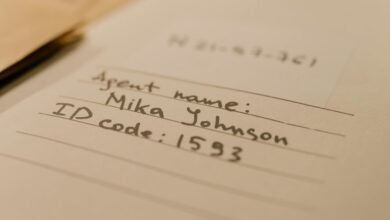 N 21-87-361
Agent name:
Mika Johnson
ID code: 1593